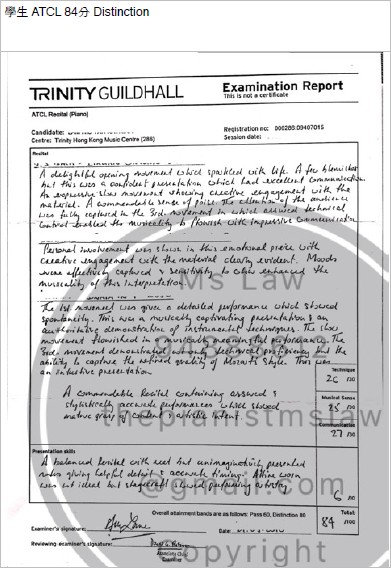 學生 ATCL 84分 Distinction
TRINITY GUILDHALL
Examination Report
This is not a certificate
ATCL Recital (Piano)
Candidate:
Registration no:
Centre: Trinity Hong Kong Music Centre (286)
Session date:
Recital
A delightful opening movement which sparkled with life. A few blemishes
but this was a confident presentation which had excellent communication.
An expressive slow movement showing creative engagement with the
material. A commendable sense of poise. The attention of the audience
was fully captured in the 3rd movement in which assured technical
control enabled the musicality to flourish with impressive communication
Personal involvement was shown in this emotional piece with
creative engagement with the material clearly evident. Moods
were effectively captured & sensitivity to color enhanced the
musicality of this interpretation.
Ms Law
The 1st movement was given a detailed performance which showed
spontaneity. This was a musically captivating presentation & an
authoritative demonstration of instrumental techniques. The slow
movement flourished in a musically meaningful performance. The
3rd movement demonstrated not only technical proficiency but the
ability to capture the refined quality of Mozart's Style. This was
an intuitive presentation
Technique
26 /30
A commendable Recital containing assured &
stylistically accurate performances which showed
mature grasp of content & artistic intent.
Musical Sense
25 /30
Communication
27 /30
thepianistmslaw
Presentation skills
A balanced recital with neat but unimaginatively presented
notes giving helpful detail & accurate timings. Attire worn
was not ideal but stagecraft showed performing artistry
6 /10
@gmail.com
Overall attainment bands are as follows: Pass 60, Distinction 80
Total:
84 /100
Examiner's signature:
Date:
Reviewing examiner's signature:
copyright